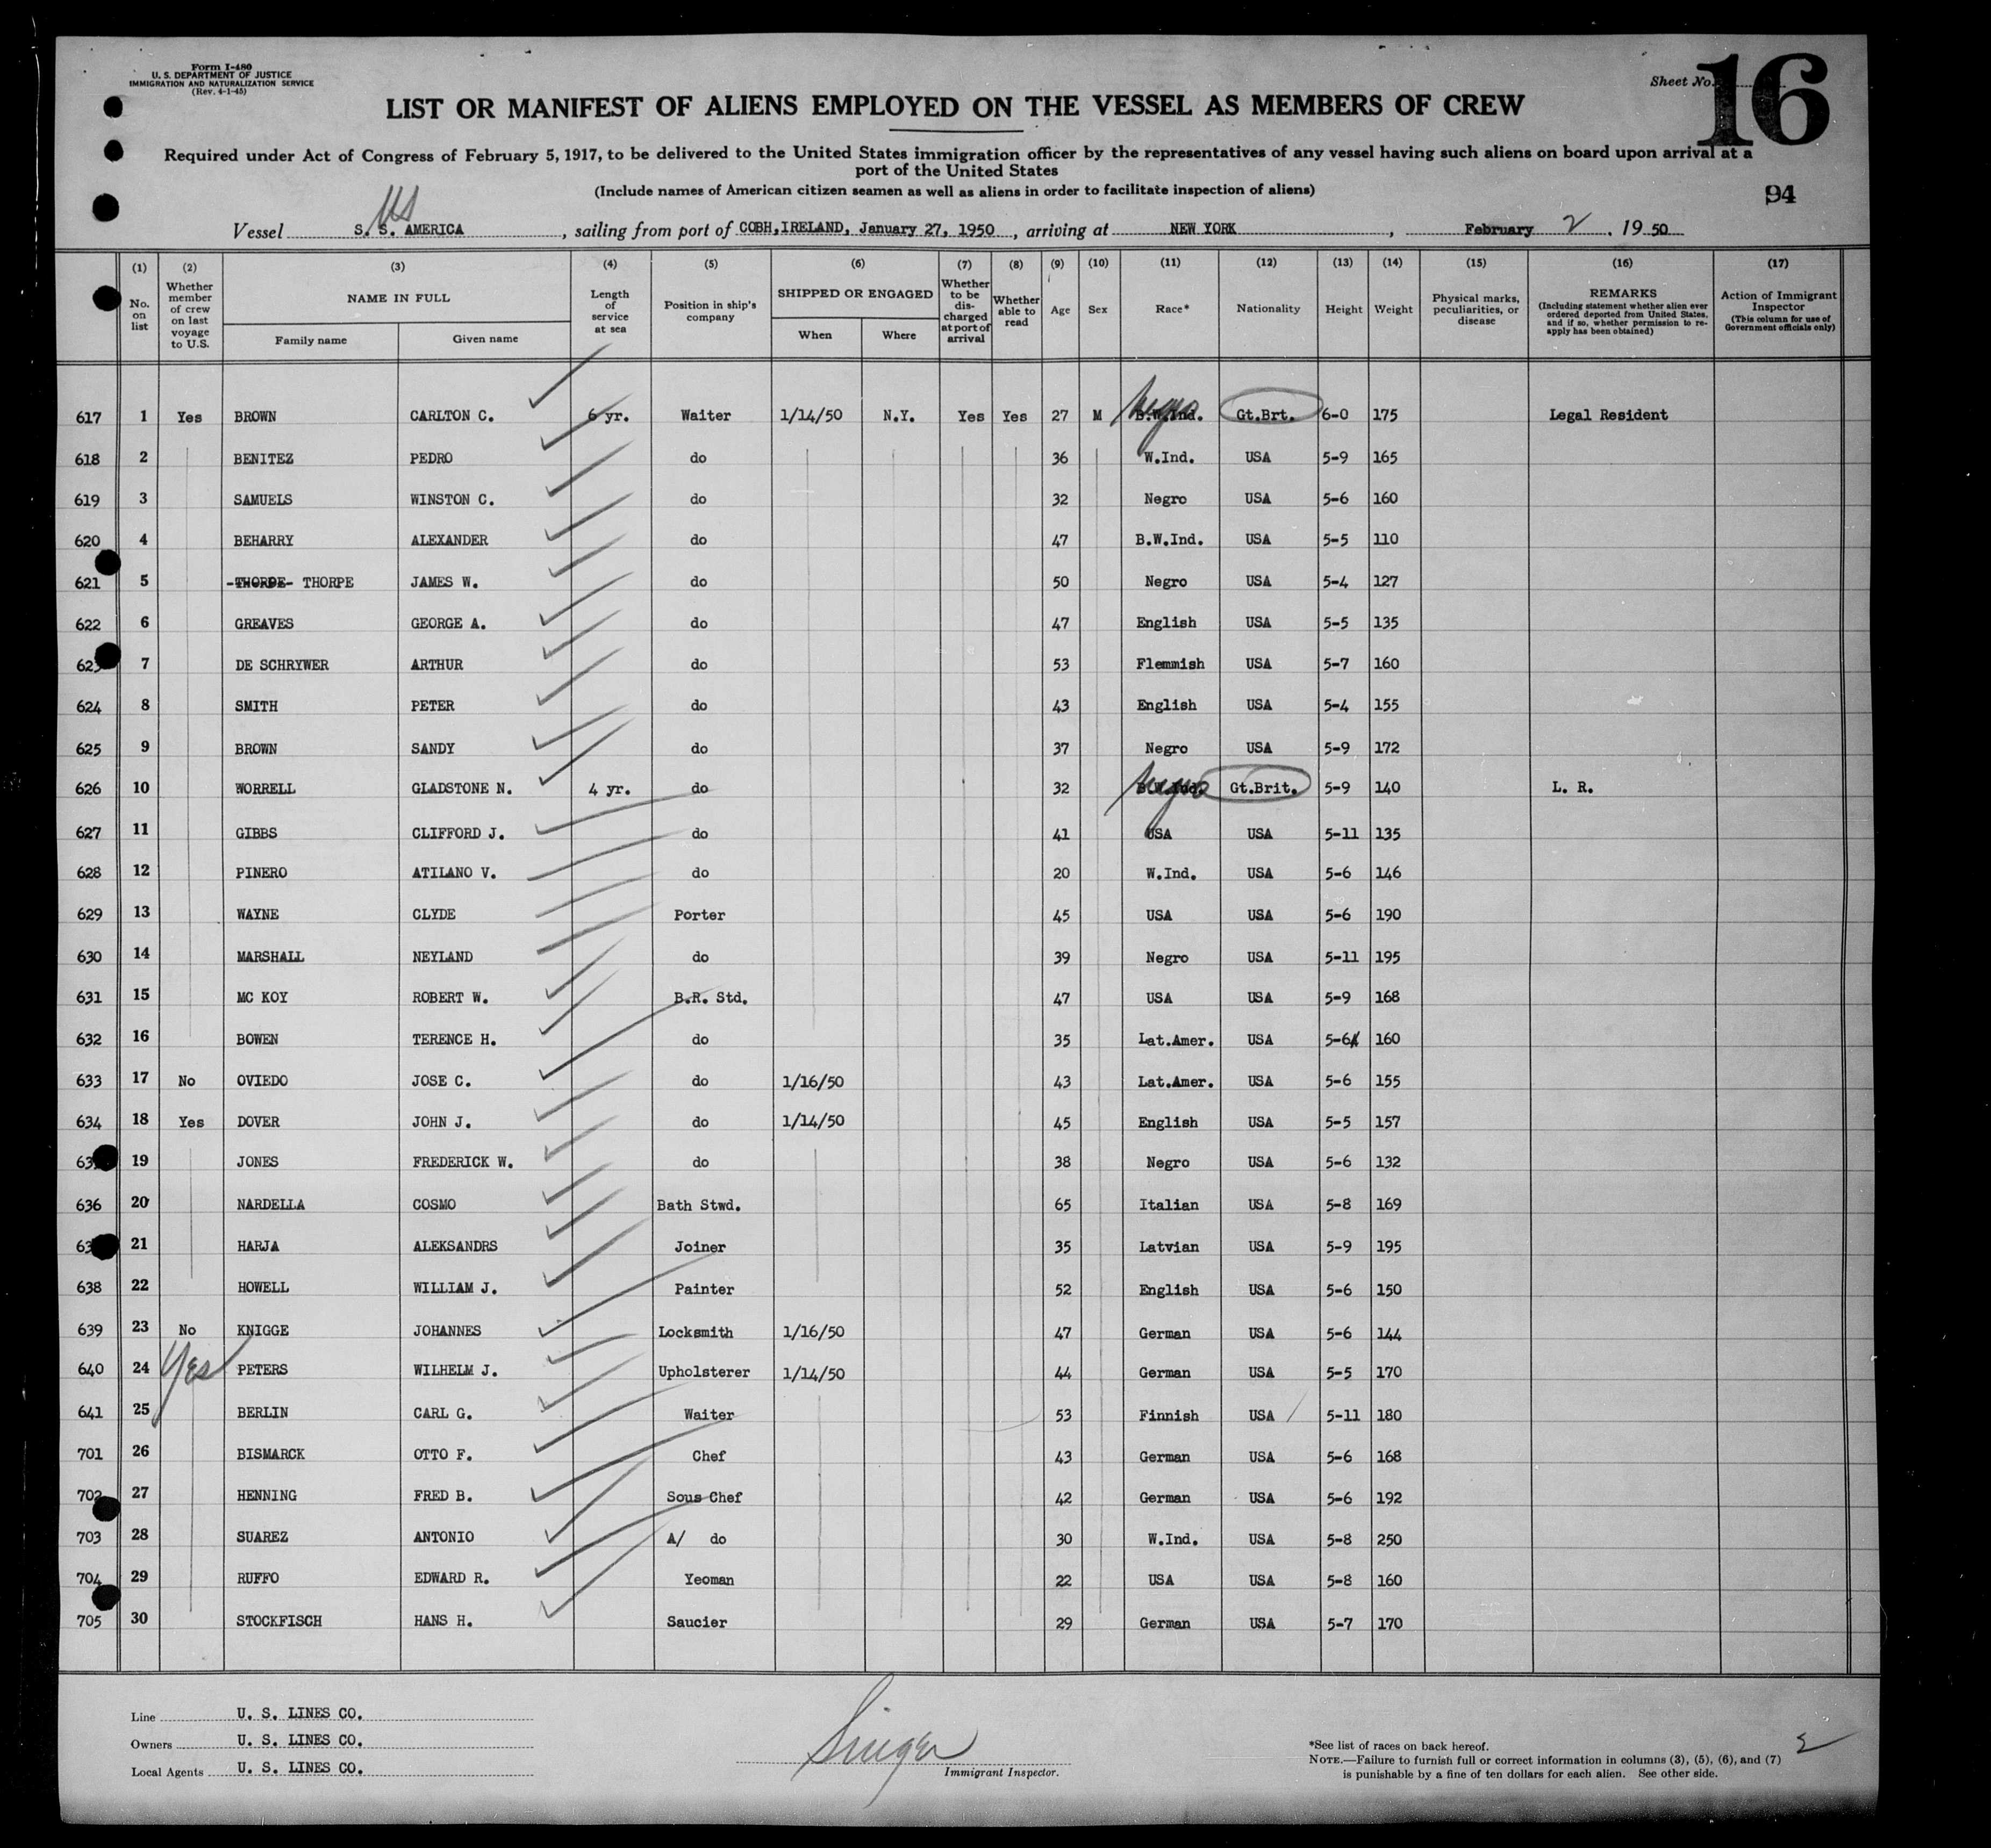 Form I-480
U. S. DEPARTMENT OF JUSTICE
IMMIGRATION AND NATURALIZATION SERVICE
(Rev. 4-1-45)
Sheet No. 16
LIST OR MANIFEST OF ALIENS EMPLOYED ON THE VESSEL AS MEMBERS OF CREW
Required under Act of Congress of February 5, 1917, to be delivered to the United States immigration officer by the representatives of any vessel having such aliens on board upon arrival at a
port of the United States
(Include names of American citizen seamen as well as aliens in order to facilitate inspection of aliens)
94
US
Vessel S. S. AMERICA, sailing from port of COBH, IRELAND, January 27, 1950, arriving at NEW YORK, February 2, 1950
(1) (2) (3) (4) (5) (6) (7) (8) (9) (10) (11) (12) (13) (14) (15) (16) (17)
No. on list
Whether member of crew on last voyage to U.S.
NAME IN FULL
Family name
Given name
Length of service at sea
Position in ship's company
SHIPPED OR ENGAGED
When
Where
Whether to be discharged at port of arrival
Whether able to read
Age
Sex
Race*
Nationality
Height
Weight
Physical marks, peculiarities, or disease
REMARKS
(Including statement whether alien ever ordered deported from United States, and if so, whether permission to re-apply has been obtained)
Action of Immigrant Inspector
(This column for use of Government officials only)
617 1 Yes BROWN CARLTON C. 6 yr. Waiter 1/14/50 N.Y. Yes Yes 27 M B.W.Ind. Negro Gt.Brt. 6-0 175 Legal Resident
618 2 BENITEZ PEDRO do 36 W.Ind. USA 5-9 165
619 3 SAMUELS WINSTON C. do 32 Negro USA 5-6 160
620 4 BEHARRY ALEXANDER do 47 B.W.Ind. USA 5-5 110
621 5 -THORDE- THORPE JAMES W. do 50 Negro USA 5-4 127
622 6 GREAVES GEORGE A. do 47 English USA 5-5 135
623 7 DE SCHRYWER ARTHUR do 53 Flemmish USA 5-7 160
624 8 SMITH PETER do 43 English USA 5-4 155
625 9 BROWN SANDY do 37 Negro USA 5-9 172
626 10 WORRELL GLADSTONE N. 4 yr. do 32 B.W.Ind. Negro Gt.Brit. 5-9 140 L. R.
627 11 GIBBS CLIFFORD J. do 41 USA USA 5-11 135
628 12 PINERO ATILANO V. do 20 W.Ind. USA 5-6 146
629 13 WAYNE CLYDE Porter 45 USA USA 5-6 190
630 14 MARSHALL NEYLAND do 39 Negro USA 5-11 195
631 15 MC KOY ROBERT W. B.R. Std. 47 USA USA 5-9 168
632 16 BOWEN TERENCE H. do 35 Lat.Amer. USA 5-6 160
633 17 No OVIEDO JOSE C. do 1/16/50 43 Lat.Amer. USA 5-6 155
634 18 Yes DOVER JOHN J. do 1/14/50 45 English USA 5-5 157
63 19 JONES FREDERICK W. do 38 Negro USA 5-6 132
636 20 NARDELLA COSMO Bath Stwd. 65 Italian USA 5-8 169
63 21 HARJA ALEKSANDRS Joiner 35 Latvian USA 5-9 195
638 22 HOWELL WILLIAM J. Painter 52 English USA 5-6 150
639 23 No KNIGGE JOHANNES Locksmith 1/16/50 47 German USA 5-6 144
640 24 Yes PETERS WILHELM J. Upholsterer 1/14/50 44 German USA 5-5 170
641 25 BERLIN CARL G. Waiter 53 Finnish USA 5-11 180
701 26 BISMARCK OTTO F. Chef 43 German USA 5-6 168
702 27 HENNING FRED B. Sous Chef 42 German USA 5-6 192
703 28 SUAREZ ANTONIO A/ do 30 W.Ind. USA 5-8 250
704 29 RUFFO EDWARD R. Yeoman 22 USA USA 5-8 160
705 30 STOCKFISCH HANS H. Saucier 29 German USA 5-7 170
Line U. S. LINES CO.
Owners U. S. LINES CO.
Local Agents U. S. LINES CO.
Singer
Immigrant Inspector.
*See list of races on back hereof.
NOTE.—Failure to furnish full or correct information in columns (3), (5), (6), and (7)
is punishable by a fine of ten dollars for each alien. See other side.